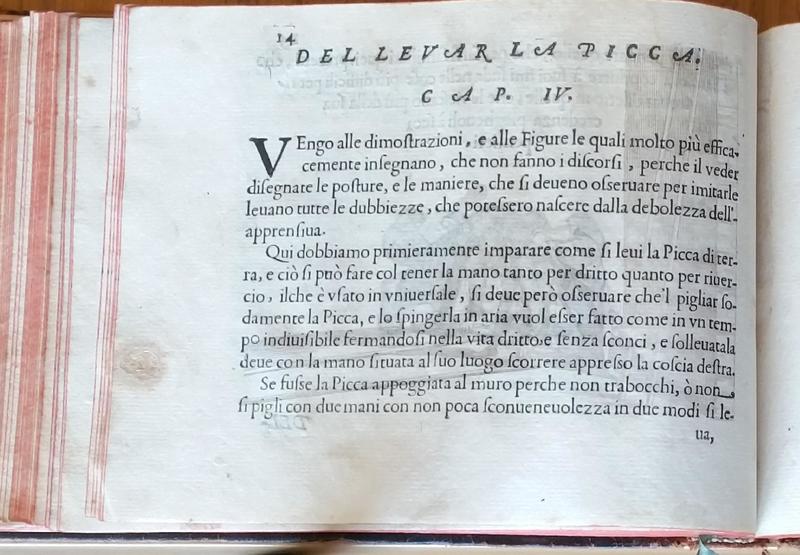 14
DEL LEVAR LA PICCA.
CAP. IV.
VEngo alle dimoſtrazioni, e alle Figure le quali molto più effica-
cemente inſegnano, che non fanno i diſcorſi, perche il veder
diſegnate le poſture, e le maniere, che ſi deueno oſſeruare per imitarle
leuano tutte le dubbiezze, che poteſſero naſcere dalla debolezza dell'-
apprenſiua.
Qui dobbiamo primieramente imparare come ſi leui la Picca di ter-
ra, e ciò ſi può fare col tener la mano tanto per dritto quanto per riuer-
cio, ilche è vſato in vniuerſale, ſi deue però oſſeruare che'l pigliar ſo-
damente la Picca, e lo ſpingerla in aria vuol eſſer fatto come in vn tem-
po indiuiſibile fermandoſi nella vita dritto, e ſenza ſconci, e ſolleuatala
deue con la mano ſituata al ſuo luogo ſcorrere appreſſo la coſcia deſtra.
Se fuſſe la Picca appoggiata al muro perche non trabocchi, ò non
ſi pigli con due mani con non poca ſconueneuolezza in due modi ſi le-
ua,